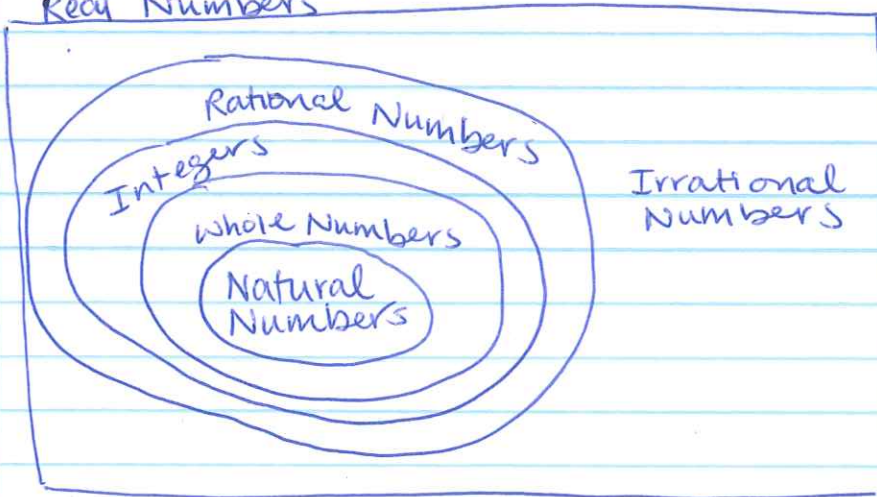 Real Numbers
Rational Numbers
Integers
Whole Numbers
Natural
Numbers
Irrational
Numbers